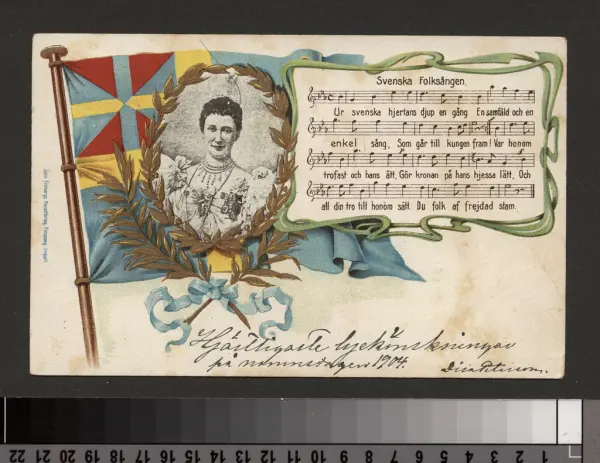 Svenska Folksången.
Ur svenska hjertans djup en gång En samfäld och en
enkel sång, Som går till kungen fram! Var honom
trofast och hans ätt, Gör kronan på hans hjessa lätt, Och
all din tro till honom sätt Du folk af frejdad stam.
Hjärtligaste lyckönskningar
på namnsdagen 1904.
22 21 20 19 18 17 16 15 14 13 12 11 10 9 8 7 6 5 4 3 2 1